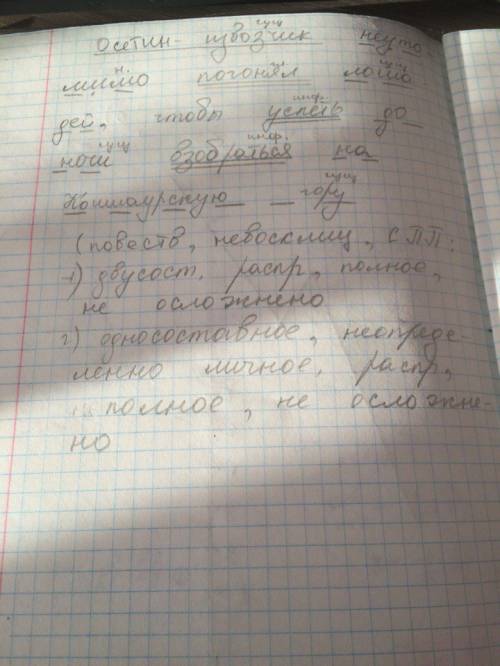 сущ
Осетин - извозчик неуто-
н. сущ
мимо погонял лоша
инф.
дей, чтобы успеть до
сущ инф.
ночи взобраться на
сущ
Койшаурскую гору
(повеств, невосклиц, СПП:
1) двусост, распр, полное,
не осложнено
2) односоставное, неопреде-
ленно личное, распр,
полное, не осложне-
но